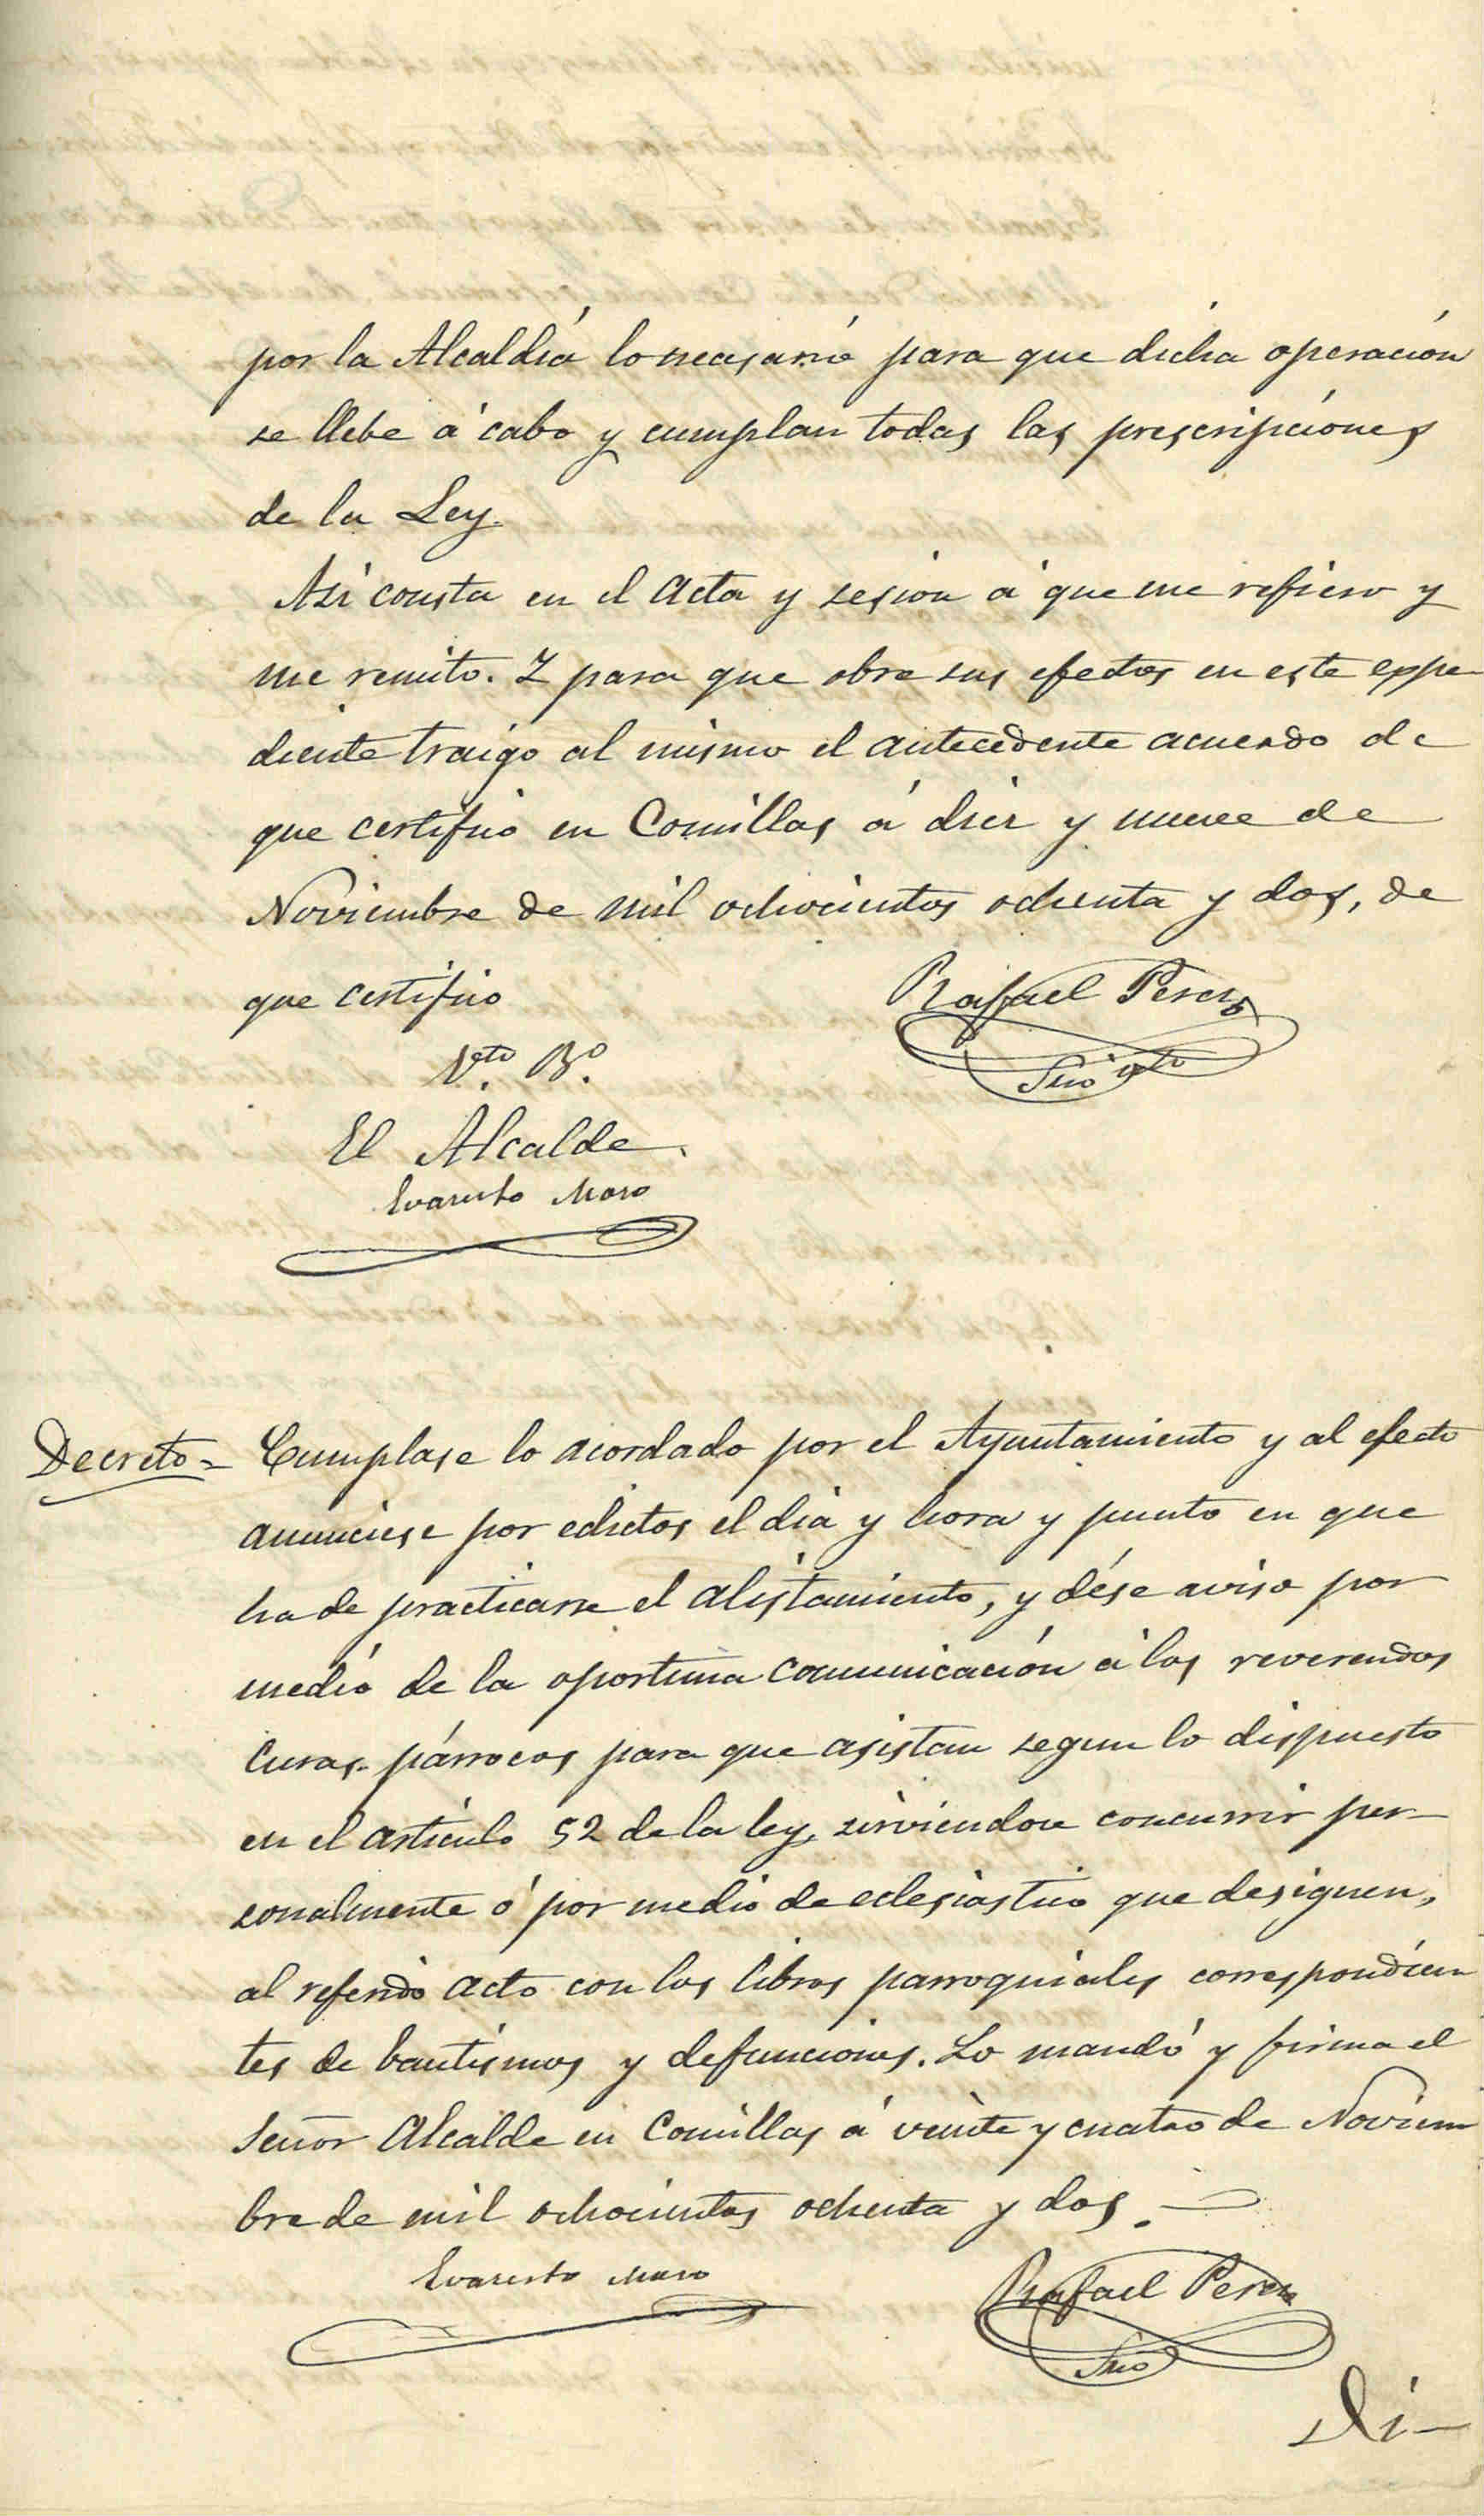 por la Alcaldia lo necesario para que dicha operacion
se llebe á cabo y cumplan todas las prescripciones
de la Ley.
Asi consta en el Acta y sesion á que me refiero y
me remito. Y para que obre sus efectos en este espe
diente traigo al mismo el antecedente acuerdo de
que certifico en Comillas á diez y nueve de
Noviembre de mil ochocientos ochenta y dos, de
que certifico
Rafael Perez
Srio
Vto. Bo.
El Alcalde
Evaristo Moro
Decreto = Cumplase lo acordado por el Ayuntamiento y al efecto
anunciese por edictos el dia y hora y punto en que
ha de practicarse el alistamiento, y dése aviso por
medio de la oportuna comunicación á los reverendos
Curas-párrocos para que asistan segun lo dispuesto
en el artículo 52 de la ley, sirviendose concurrir per
sonalmente ó por medio de eclesiastico que designen,
al referido acto con los libros parroquiales correspondien
tes de bautismos y defunciones. Lo mandó y firma el
Señor Alcalde en Comillas á veinte y cuatro de Noviem
bre de mil ochocientos ochenta y dos.
Evaristo Moro
Rafael Perez
Srio
Di-